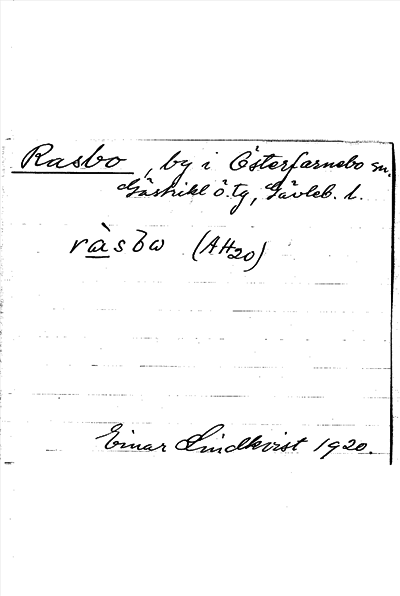 Rasbo, by i Österfärnebo sn.
Gästrikl ö.tg, Gävleb. l.
ràsbω (AH20)
Einar Lindkvist 1920.